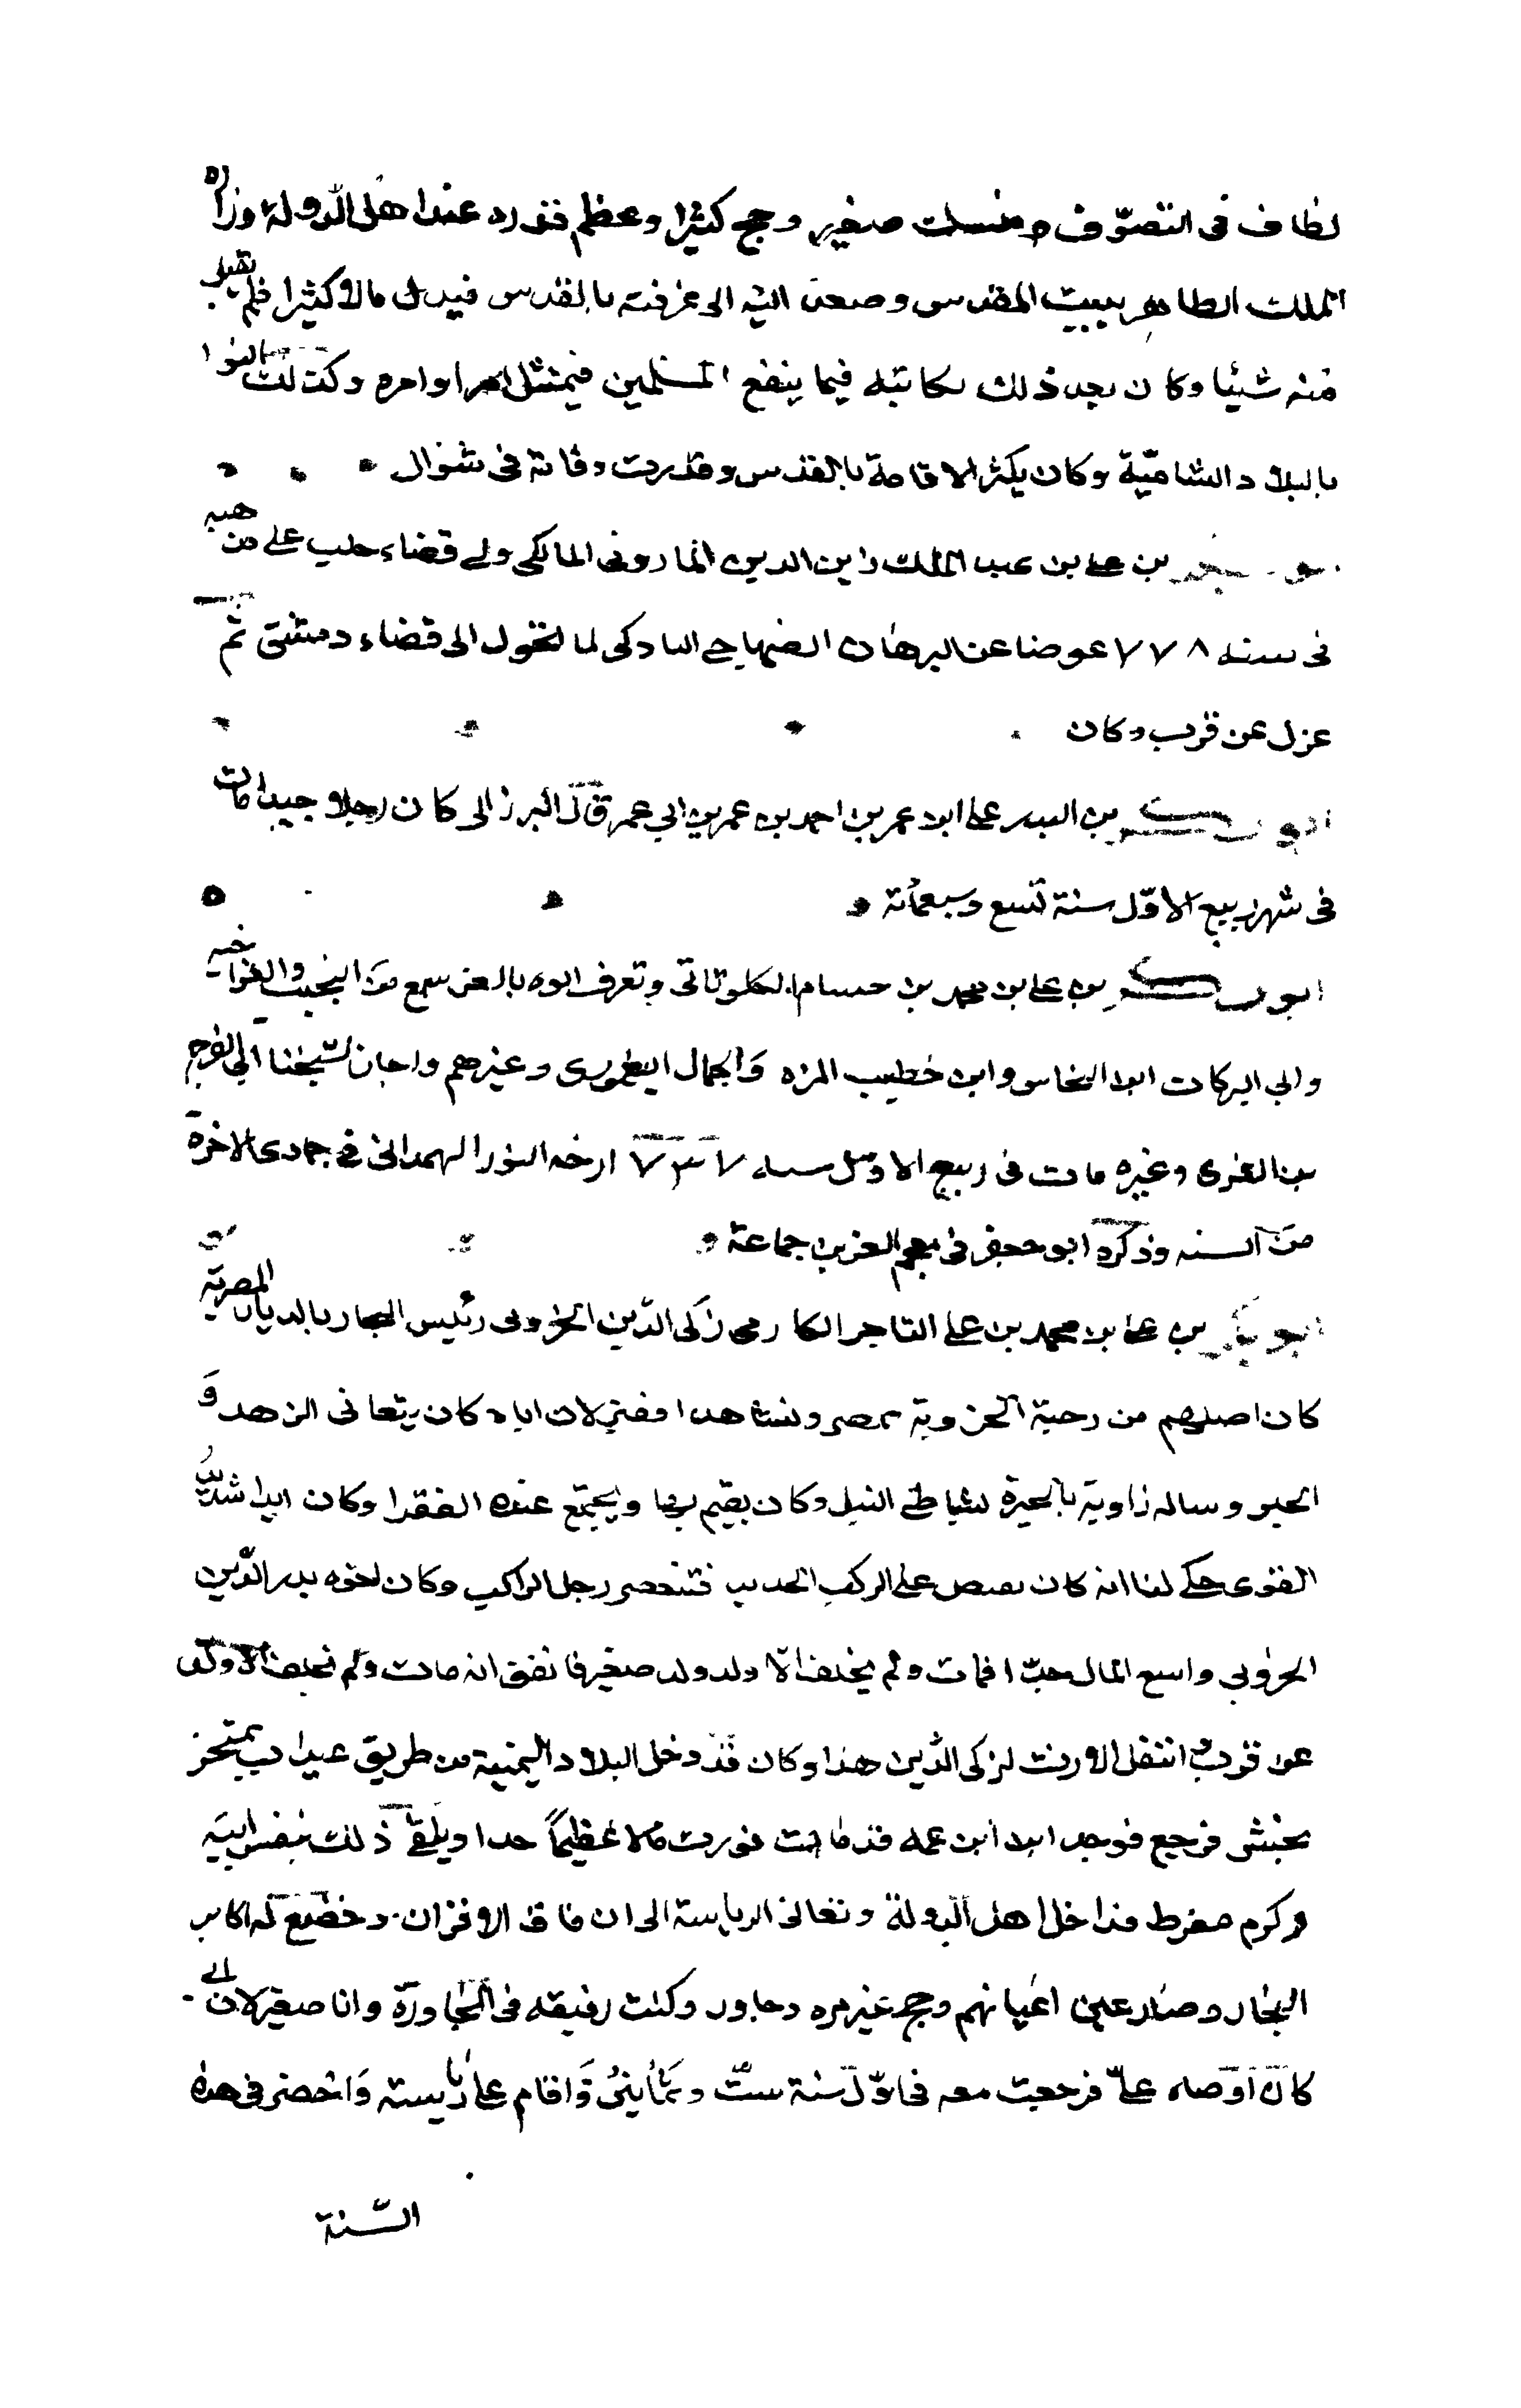 لطاف في التصوّف ومنسك صغير وحج كثيرا وعظم قدره عند اهل الدولة وزاره
الملك الظاهر ببيت المقدس وصعد اليه الى غرفته بالقدس فبذل مالا كثيرا فلم يقبل
منه شيئا وكان بعد ذلك يكاتبه فيما ينفع المسلمين فيمتثل اوامره وكتاب
بالبلاد الشاميّة وكان يكثر الاقامة بالقدس وقدرت وفاته في شوال
ابو بكر بن علي بن عبد الملك زين الدين المازوني المالكي ولي قضاء حلب على مذهبه
في سنه ٧٧٨ عوضا عن البرهان الصنهاجي البادكى لما تحول الى قضاء دمشق ثم
عزل عن قرب وكان
ابو بكر بن البدر علي ابو عمر بن احمد بن عمر بن ابي عمر قال البرزالى كان رجلا جيدا مات
في شهر ربيع الاوّل سنة تسع وسبعمائة
ابو بكر بن علي بن محمد بن حسام الكلوتاتى ويعرف ابوه بالعز سمع من النجيب واخيه العز
وابي البركات ابن النحاس وابن خطيب المزه والجمال اليغمورى وغيرهم واجاز لشيخنا ابي الفرج
بن الغزى وغيره مات في ربيع الاول سنه ٧٣٧ ارخه النور الهمدانى في جمادى الاخرة
من السنه وذكره ابو جعفر في معجم العز بن جماعة
ابو بكر بن علي بن محمد بن علي التاجر الكارمى زكى الدّين الخروبى رئيس التجار بالديار المصرية
كان اصلهم من رحبة الخروبة بمصر ونشا هذا فقيرا لان اباه كان يتعانى الزهد و
الخير وساله زاوية بالجيزة بشاطئ النيل وكان يقيم بها ويجتمع عنده الفقرا وكان ايدا شديد
القوى حكي لنا انه كان يقبض على الركب الحديد فتنحصر رجل الراكب وكان اخوه بدر الدّين
الخروبي واسع المال جدّا فمات ولم يخلف الا ولد ولد صغير فاتفق انه مات ولم يخلف الا ولدا
عن قرب انتقل الارث لزكى الدّين هذا وكان قد دخل البلاد اليمنية من طريق عيذاب بمتجر
بخس فرجع فوجد ابن ابن عمه قد مات فورث مالا عظيماً جدا ويلقى ذلك بنفس ابيّه
وكرم مفرط فداخل اهل الدولة وتعانى الرياسة الى ان فاق الاقران وخضع له اكابر
التجار وصار عين اعيانهم وحج غير مره وجاور وكنت رفيقه في المجاورة وانا صغير لان ابي
كان اوصاه عليّ فرجعت معه في اوّل سنة ستّ وثمانين واقام على رياسته واحضر في هذه
السّنة